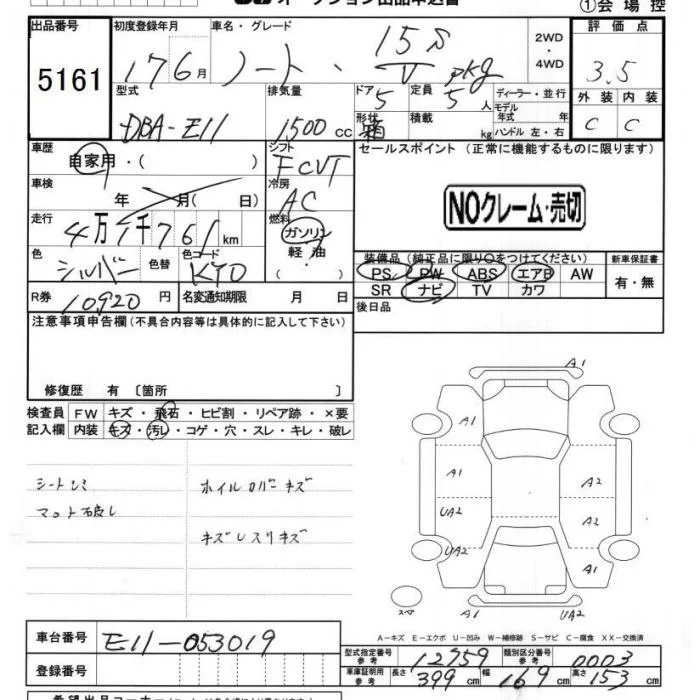 オークション出品申込書
①会場控
出品番号
5161
初度登録年月
17 6月
車名・グレード
ノート・ 15S V pkg
2WD
・4WD
評価点
3.5
外装 内装
C C
型式
DBA-E11
排気量
1500cc
ドア
5
形状
定員
5人
積載
kg
ディーラー・並行
モデル年式 年
ハンドル 左・右
車歴
自家用・( )
シフト
FCVT
セールスポイント (正常に機能するものに限ります)
NOクレーム・売切
車検
年 月( 日)
冷房
AC
走行
4万1千761km
燃料
ガソリン
軽油
( )
色
シルバー
色替
色コード
KY0
R券
10920円
名変通知期限 月 日
装備品 (純正品に限り○をつけてください)
PS PW ABS エアB AW
SR ナビ TV カワ
新車保証書
有・無
後日品
注意事項申告欄(不具合内容等は具体的に記入して下さい)
修復歴 有 〔箇所 〕
検査員記入欄
FW キズ・飛石・ヒビ割・リペア跡・×要
内装 キズ・汚レ・コゲ・穴・スレ・キレ・破レ
シートシミ
マット破レ
ホイルカバーキズ
キズレスリキズ
A1
A1
A1
A2
UA2
A2
UA2
A1
スペ
A1
UA2
A-キズ E-エクボ U-凹み W-補修跡 S-サビ C-腐食 XX-交換済
車台番号
E11-053019
登録番号
型式指定番号 参考
12959
類別区分番号 参考
0003
車庫証明用 参考
長さ 399cm 幅 169cm 高さ 153cm